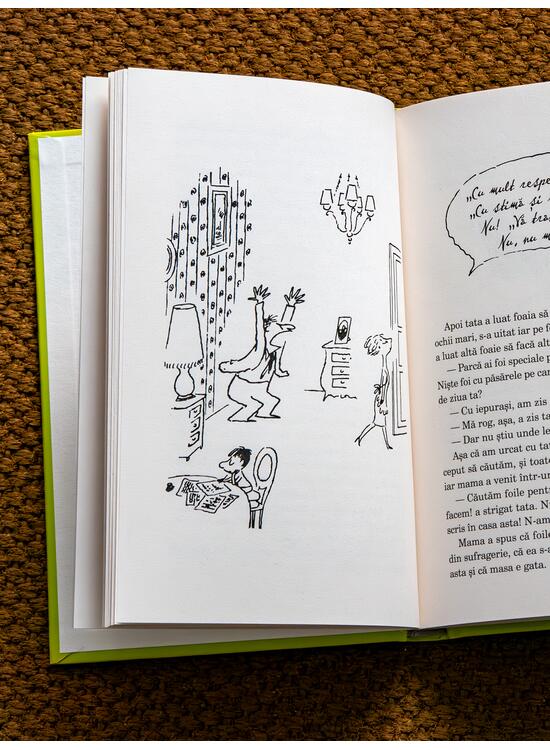 „Cu mult respe
„Cu stimă și
Nu! „Vă tra
Nu, nu m
Apoi tata a luat foaia să
ochii mari, s-a uitat iar pe fo
a luat altă foaie să facă alt
— Parcă ai foi speciale p
Niște foi cu păsărele pe car
de ziua ta?
— Cu iepurași, am zis
— Mă rog, așa, a zis ta
— Dar nu știu unde le
Așa că am urcat cu tat
ceput să căutăm, și toate
iar mama a venit într-un
— Căutăm foile pentr
facem! a strigat tata. N
scris în casa asta! N-am
Mama a spus că foile
din sufragerie, că ea s-a
asta și că masa e gata.